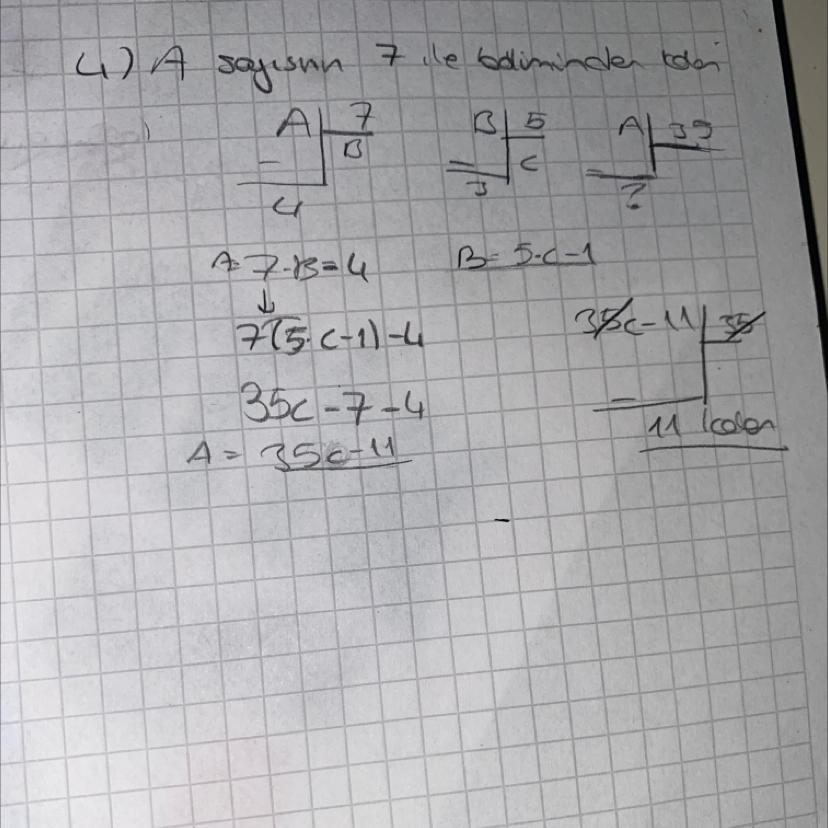 4) A sayısının 7 ile bölümünden kalan
A 7 B 5 A 35
B C
4 3 ?
A = 7·B = 4 B = 5·c-1
7(5·c-1)-4 35c-11 35
35c-7-4
11 kalan
A = 35c-11